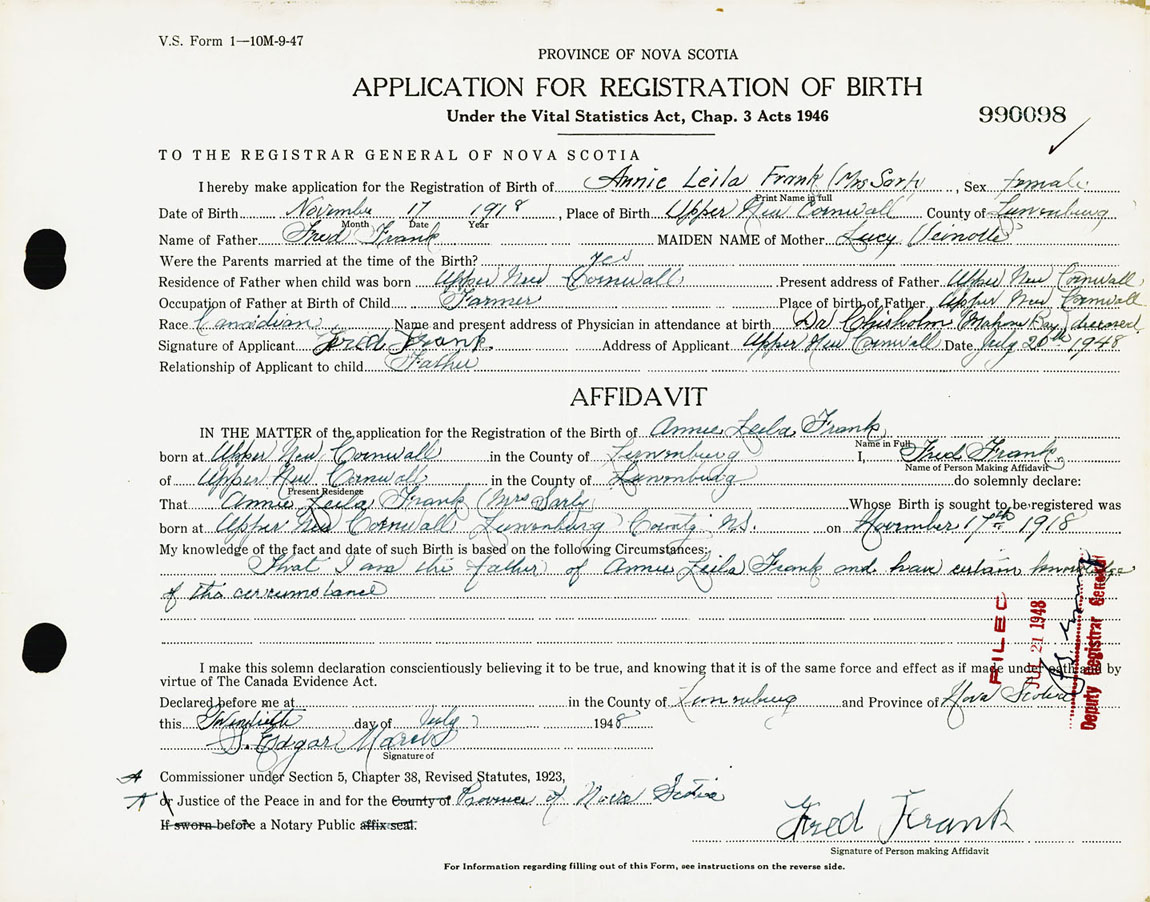 V.S. Form 1—10M-9-47
PROVINCE OF NOVA SCOTIA
APPLICATION FOR REGISTRATION OF BIRTH
Under the Vital Statistics Act, Chap. 3 Acts 1946
990098
TO THE REGISTRAR GENERAL OF NOVA SCOTIA
I hereby make application for the Registration of Birth of Annie Leila Frank (Mrs , Sex female
Print Name in full
Date of Birth November 17 1918, Place of Birth Upper New Cornwall County of Lunenburg
Month Date Year
Name of Father Fred Frank MAIDEN NAME of Mother Lucy Veinotte
Were the Parents married at the time of the Birth? yes
Residence of Father when child was born Upper New Cornwall Present address of Father Upper New Cornwall
Occupation of Father at Birth of Child Farmer Place of birth of Father Upper New Cornwall
Race Canadian Name and present address of Physician in attendance at birth Dr Chisholm Mahone Bay, deceased
Signature of Applicant Fred Frank. Address of Applicant Upper New Cornwall Date July 20th 1948
Relationship of Applicant to child Father
AFFIDAVIT
IN THE MATTER of the application for the Registration of the Birth of Annie Leila Frank
Name in Full
born at Upper New Cornwall in the County of Lunenburg I, Fred Frank
Name of Person Making Affidavit
of Upper New Cornwall in the County of Lunenburg do solemnly declare:
Present Residence
That Annie Leila Frank (Mrs Whose Birth is sought to be registered was
born at Upper New Cornwall Lunenburg County N.S. on November 17th 1918
My knowledge of the fact and date of such Birth is based on the following Circumstances:
That I am the father of Annie Leila Frank and have certain knowledge
of this circumstance
I make this solemn declaration conscientiously believing it to be true, and knowing that it is of the same force and effect as if made under oath and by
virtue of The Canada Evidence Act.
Declared before me at in the County of Lunenburg and Province of Nova Scotia
this Twentieth day of July 1948
S. Edgar
Signature of
A Commissioner under Section 5, Chapter 38, Revised Statutes, 1923,
A or Justice of the Peace in and for the County of Province of Nova Scotia
If sworn before a Notary Public affix seal.
Fred Frank
Signature of Person making Affidavit
For Information regarding filling out of this Form, see instructions on the reverse side.
FILED
JUL 21 1948
Deputy Registrar General